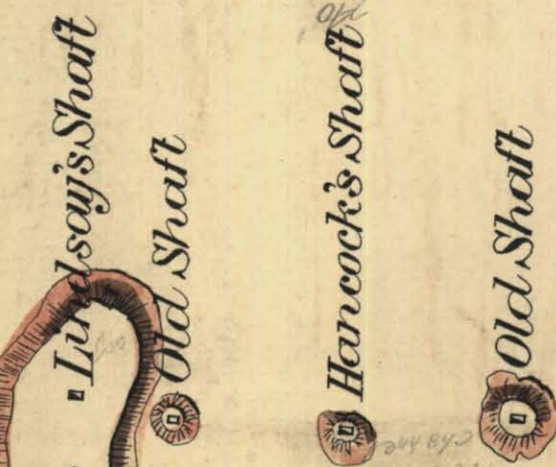 Lindsay's Shaft
Old Shaft
Hancock's Shaft
Old Shaft